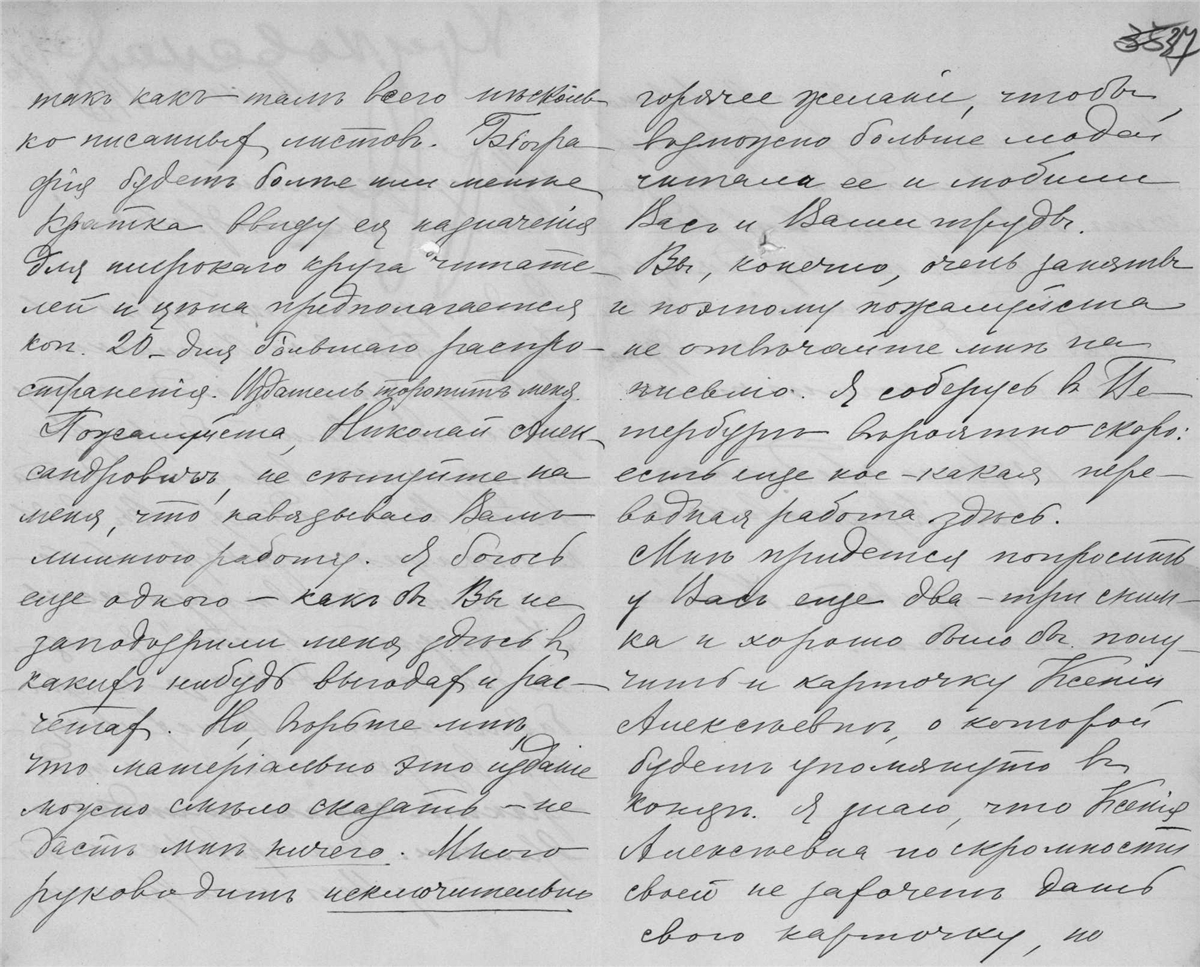 3537
такъ какъ тамъ всего нѣсколь-
ко писанныхъ листовъ. Біогра
фія будетъ болѣе или менѣе
кратка ввиду ея назначенія
для широкаго круга читате-
лей и цѣна предполагается
коп. 20 – для большаго распро-
страненія. Издатель торопитъ меня.
Пожалуйста, Николай Алек-
сандровичъ, не сѣтуйте на
меня, что навязываю Вамъ
лишнюю работу. Я боюсь
еще одного – какъ бы Вы не
заподозрили меня здѣсь въ
какихъ нибудь выгодахъ и рас-
четахъ. Но, вѣрьте мнѣ,
что матеріально это изданіе
можно смѣло сказать – не
дастъ мнѣ ничего. Мною
руководитъ исключительно
горячее желаніе, чтобы
возможно больше людей
читала ее и любили
Васъ и Ваши труды.
Вы, конечно, очень заняты
и поэтому пожалуйста
не отвѣчайте мнѣ на
письмо. Я соберусь въ Пе-
тербургъ вѣроятно скоро:
есть еще кое-какая пере-
водная работа здѣсь.
Мнѣ придется попросить
у Васъ еще два-три сним-
ка и хорошо было бы полу-
чить и карточку Ксеніи
Алексѣевны, о которой
будетъ упомянуто въ
концѣ. Я знаю, что Ксенія
Алексѣевна по скромности
своей не захочетъ дать
свою карточку, но